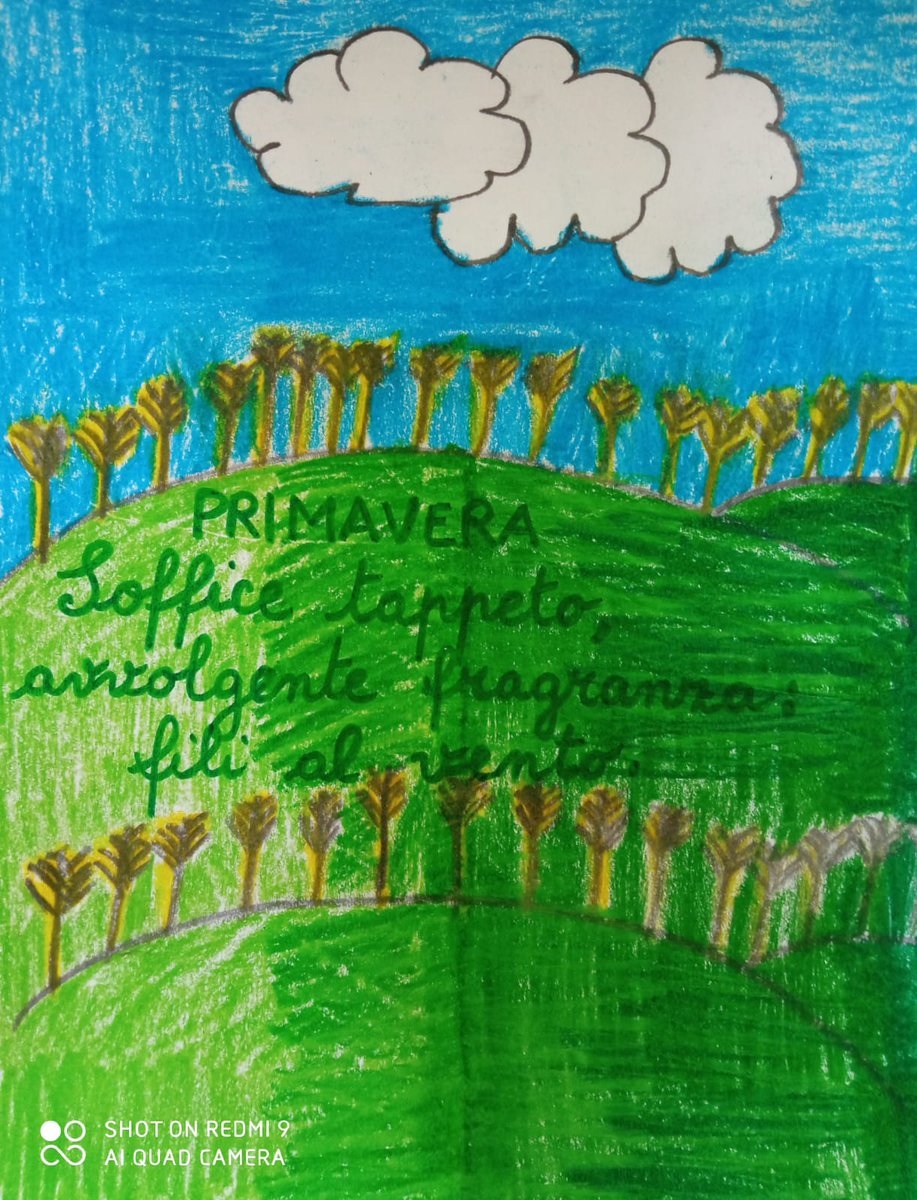 PRIMAVERA
Soffice tappeto,
avvolgente fragranza:
fili al vento.
SHOT ON REDMI 9
AI QUAD CAMERA